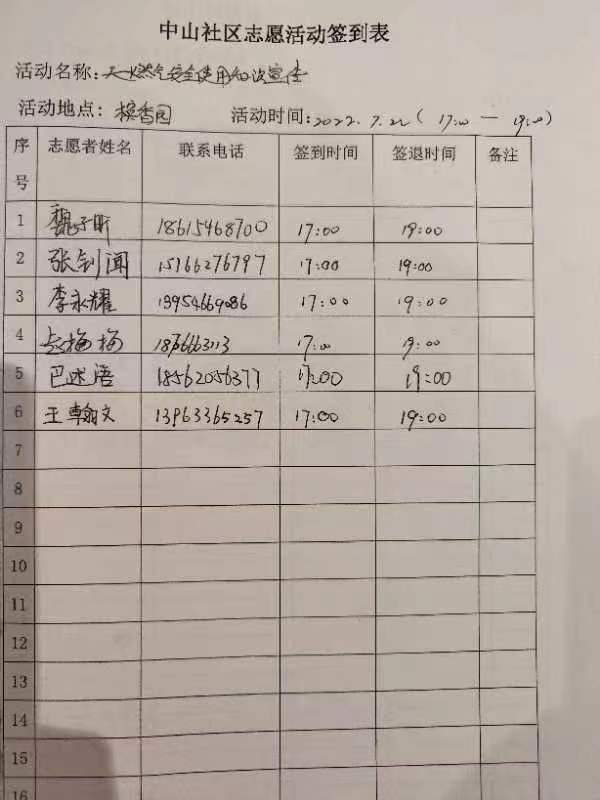 中山社区志愿活动签到表
活动名称:天燃气安全使用知识宣传
活动地点: 槟香园 活动时间:2022.7.22(17:00—19:00)
序号 志愿者姓名 联系电话 签到时间 签退时间 备注
1 魏子昕 18615468700 17:00 19:00
2 张钊闻 15166276797 17:00 19:00
3 李永耀 13954669086 17:00 19:00
4 梅杨 17:00 19:00
5 巴述语 18562056377 17:00 19:00
6 王翰文 13963365257 17:00 19:00
7
8
9
10
11
12
13
14
15
16